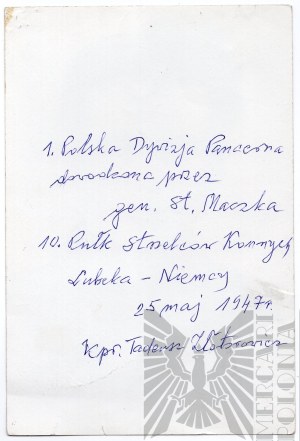 1. Polska Dywizja Pancerna
dowodzona przez
gen. St. Maczka
10. Pułk Strzelców Konnych
Lubeka – Niemcy
25 maj 1947r.
Kpr. Tadeusz
MERCARI
POLONIA